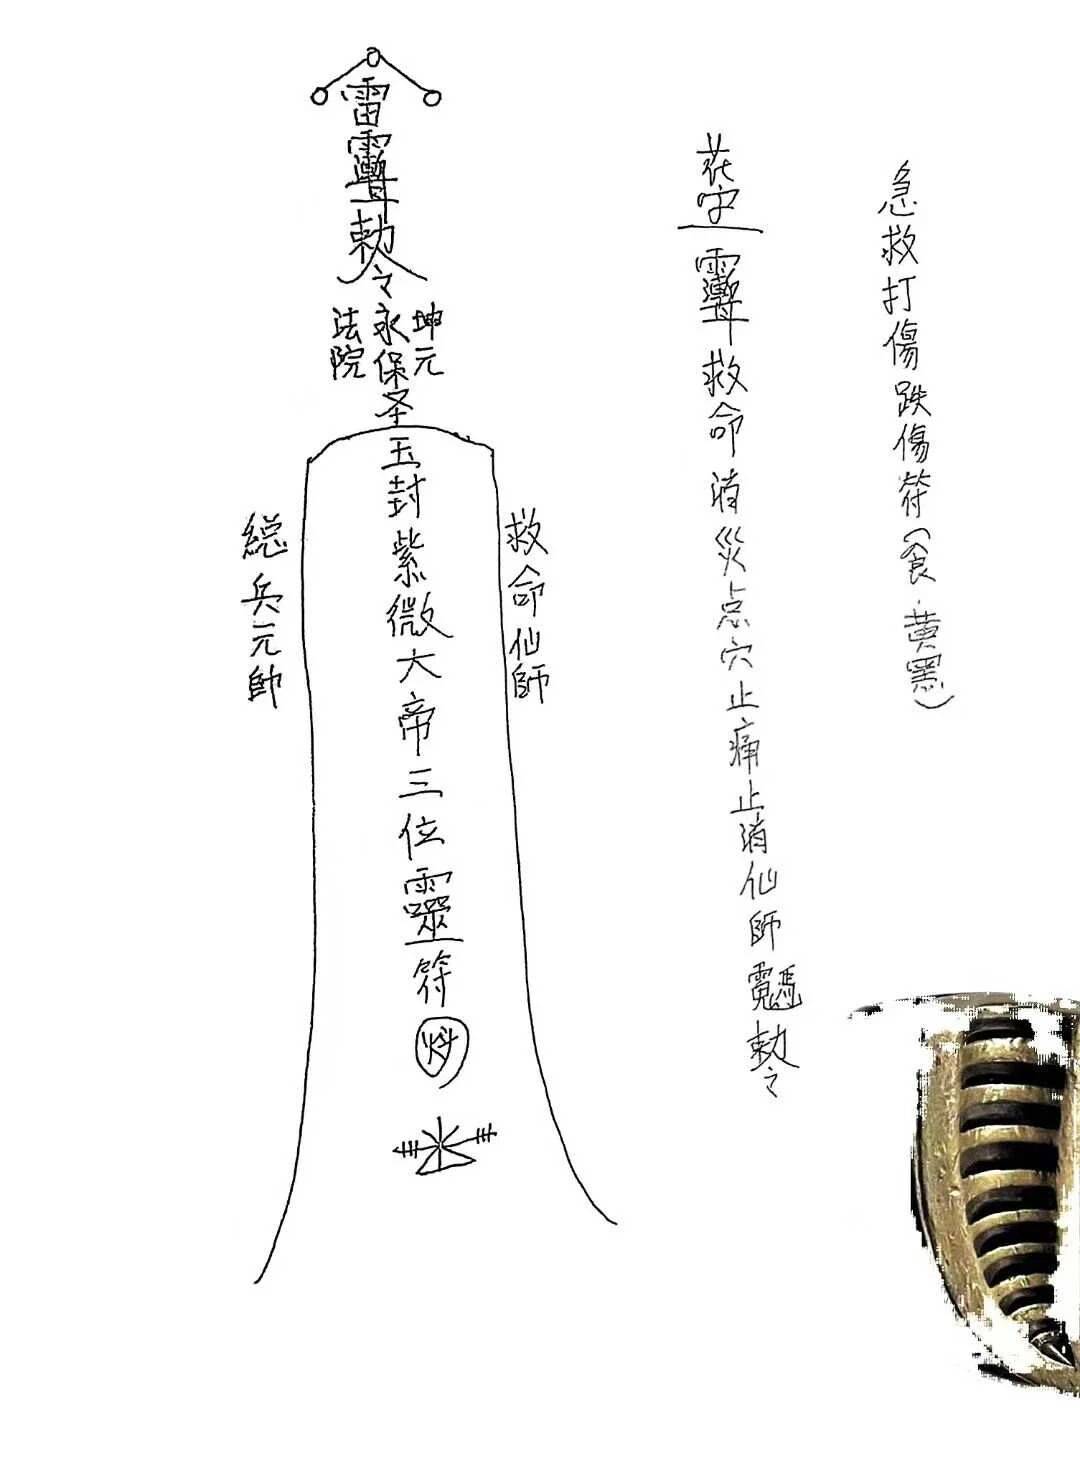 急救打傷跌傷符(食.黄罴)
救命消災点穴止痛止消仙師 勅令
雷 勅令
坤元
永保圣玉封紫微大帝三位靈符
法院
救命仙師
総兵元帥